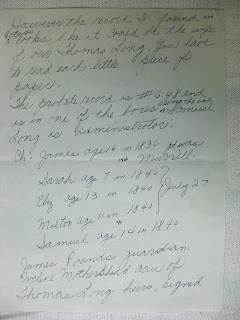 However the record I found in
looks like it could be the wife
of our Thomas Long. You have
to read each little piece of
paper.
The probate record is # 648 and
is in one of the boxes Samuel
Long is administrator.
Ch: James age 16 in 1836
Murrell.
Sarah age 7 in 1840
Eliz age 13 in 1840 July 27
Milton age 11 in 1840
Samuel age 14 in 1840
James Pounds guardian,
Eveline Mothershed dau of
Thomas Long heir, signed